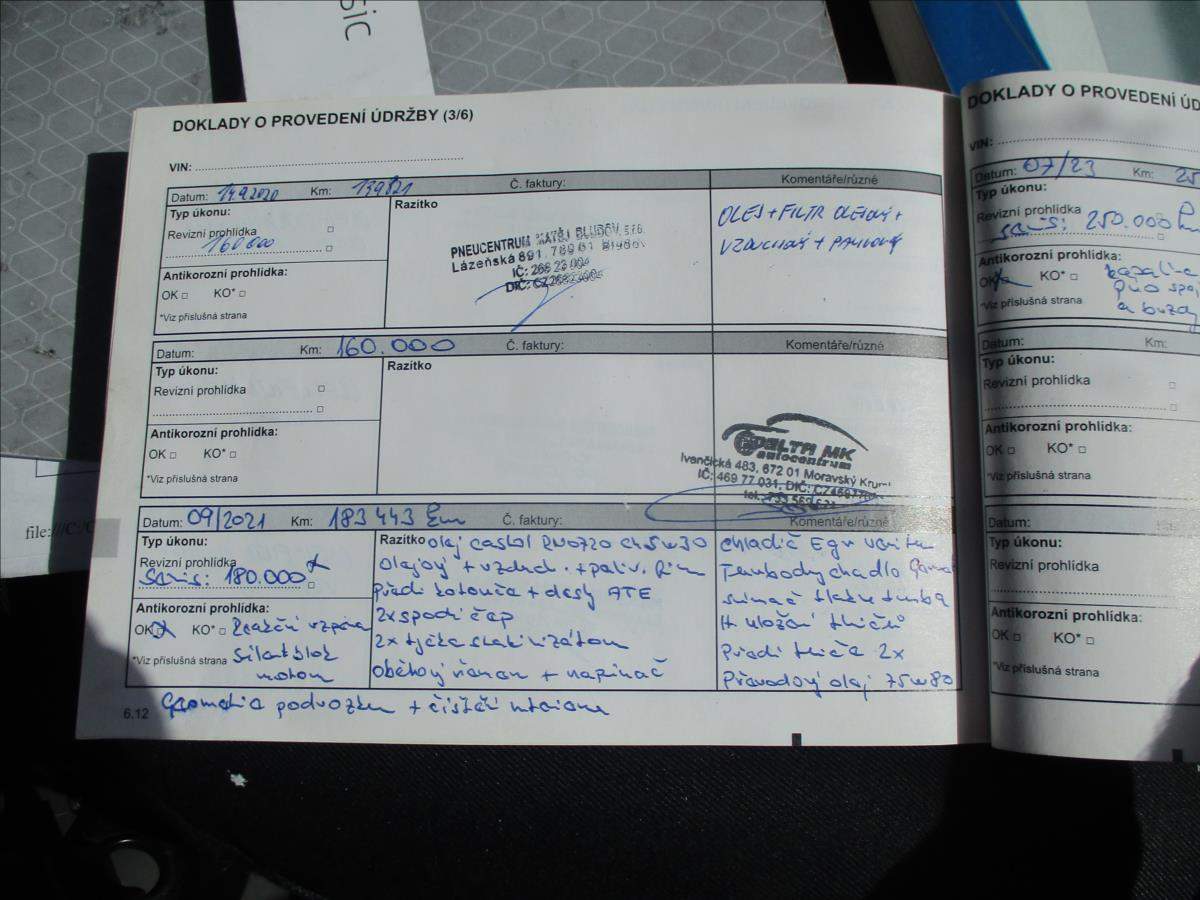 sic
DOKLADY O PROVEDENÍ ÚDRŽBY (3/6)
VIN:
Datum: 14.9.2020 Km: 139821 Č. faktury: Komentáře/různé
Typ úkonu:
Revizní prohlídka
160 000
Antikorozní prohlídka:
OK KO*
*Viz příslušná strana
Razítko
PNEUCENTRUM MATĚJ BLUDOV, s.r.o.
Lázeňská 891, 789 61 Bludov
IČ: 268 23 004
DIČ:
OLEJ + FILTR OLEJOVÝ +
VZDUCHOVÝ + PALIVOVÝ
Datum: Km: 160.000 Č. faktury: Komentáře/různé
Typ úkonu:
Revizní prohlídka
Antikorozní prohlídka:
OK KO*
*Viz příslušná strana
Razítko
DELTA MK
autocentrum
Ivančická 483, 672 01 Moravský Kruml
IČ: 469 77 031, DIČ:
tel.
Datum: 09/2021 Km: 183 443 km Č. faktury: Komentáře/různé
Typ úkonu:
Revizní prohlídka x
servis: 180.000
Antikorozní prohlídka:
OK x KO* Reakční vzpěra
*Viz příslušná strana silentblok
motoru
Razítko olej castrol RN0720 5w30
olejový + vzduch. + paliv. film
Přední kotouče + desky ATE
2x spodní čep
2x tyčka stabilizátoru
oběhový řemen + napínač
chladič Egr
Turbodychadlo
snímač tlaku turba
uložení tlumičů
Přední tlumiče 2x
Převodový olej 75w80
6.12
Geometrie podvozku + čištění
DOKLADY O PROVEDENÍ ÚD
VIN:
Datum: 07/23 Km: 25
Typ úkonu:
Revizní prohlídka 250.000 km
servis:
Antikorozní prohlídka:
OK x KO* kapalina
*Viz příslušná strana pro spoj
a brzdy
Datum: Km:
Typ úkonu:
Revizní prohlídka
Antikorozní prohlídka:
OK KO*
*Viz příslušná strana
Datum:
Typ úkonu:
Revizní prohlídka
Antikorozní prohlídka:
OK KO*
*Viz příslušná strana
file:///C:/C